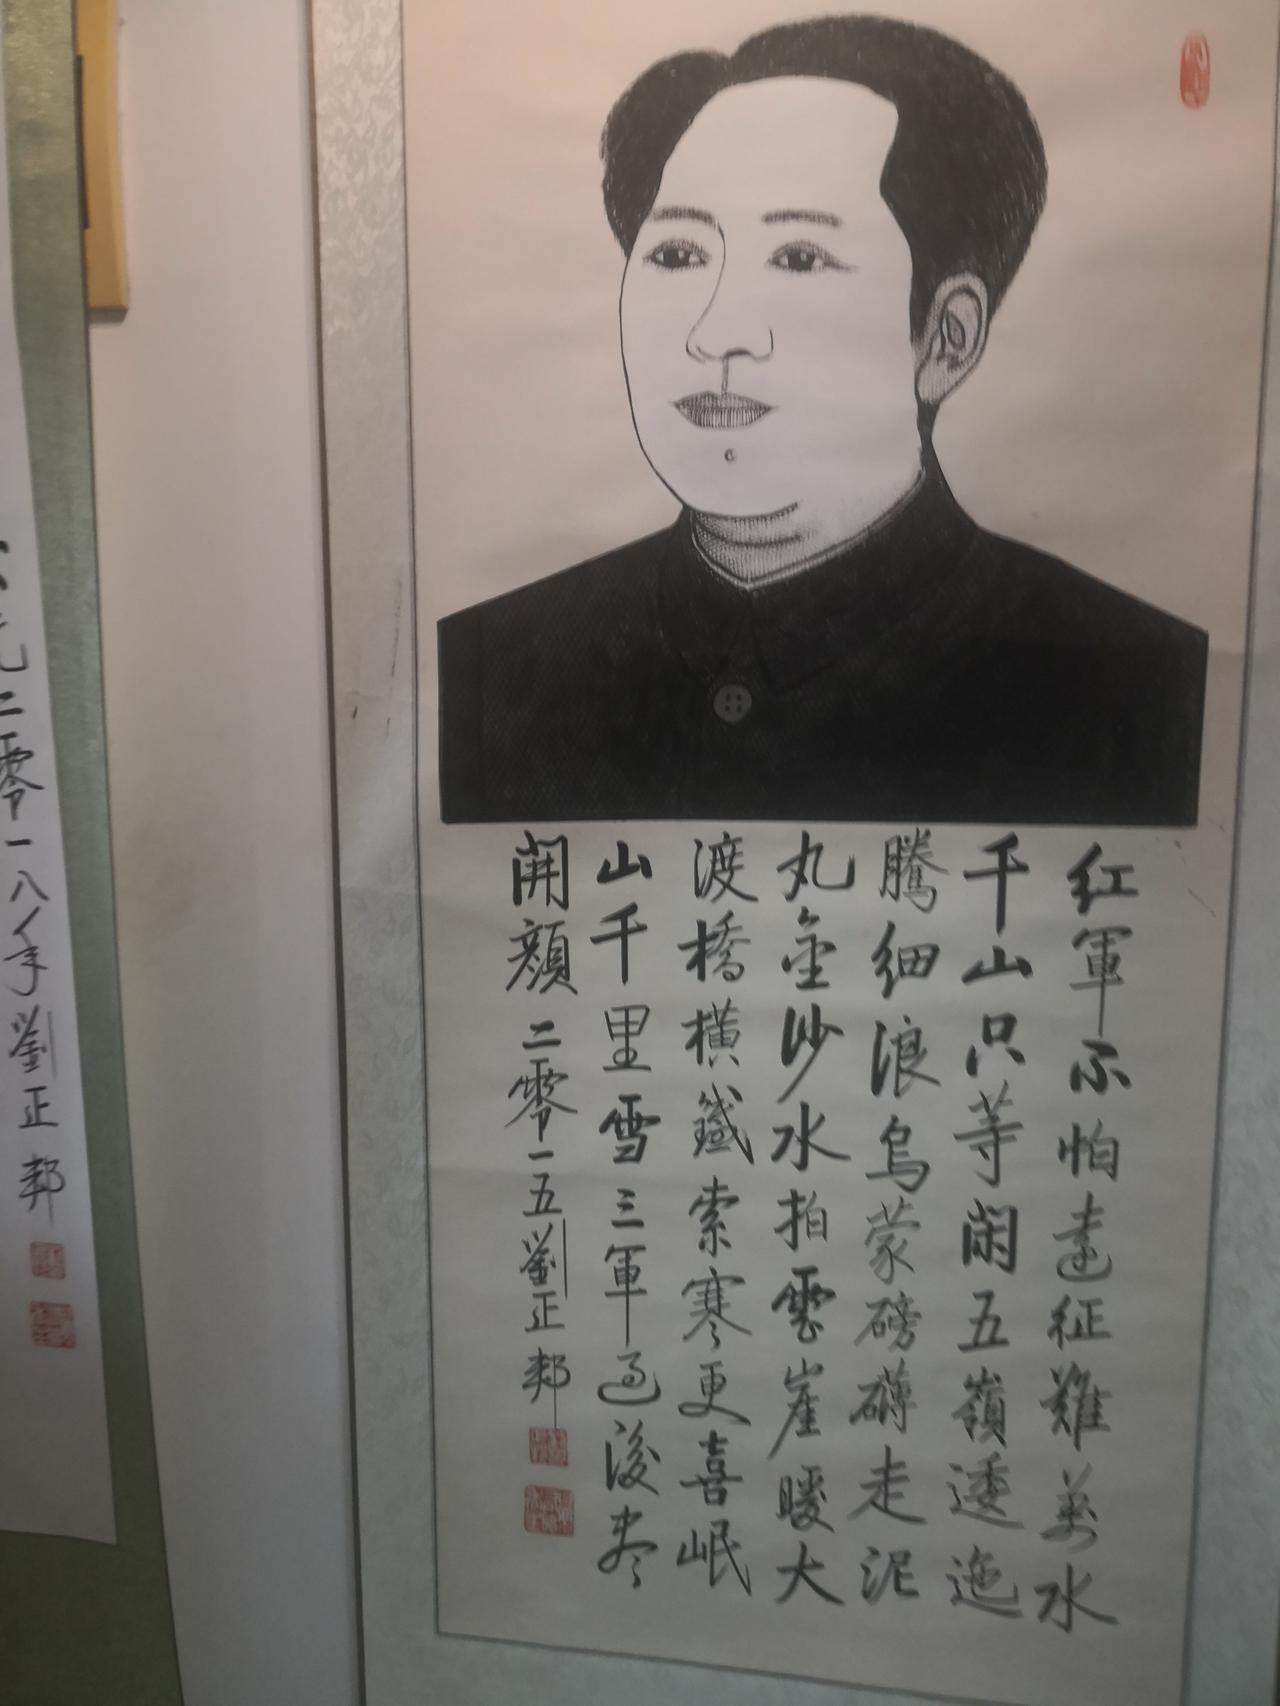 紅軍不怕遠征難萬水
千山只等閑五嶺逶迤
騰細浪烏蒙磅礴走泥
丸金沙水拍雲崖暖大
渡橋橫鐵索寒更喜岷
山千里雪三軍過後盡
開顏 二零一五劉正邦
元二零一八年劉正邦